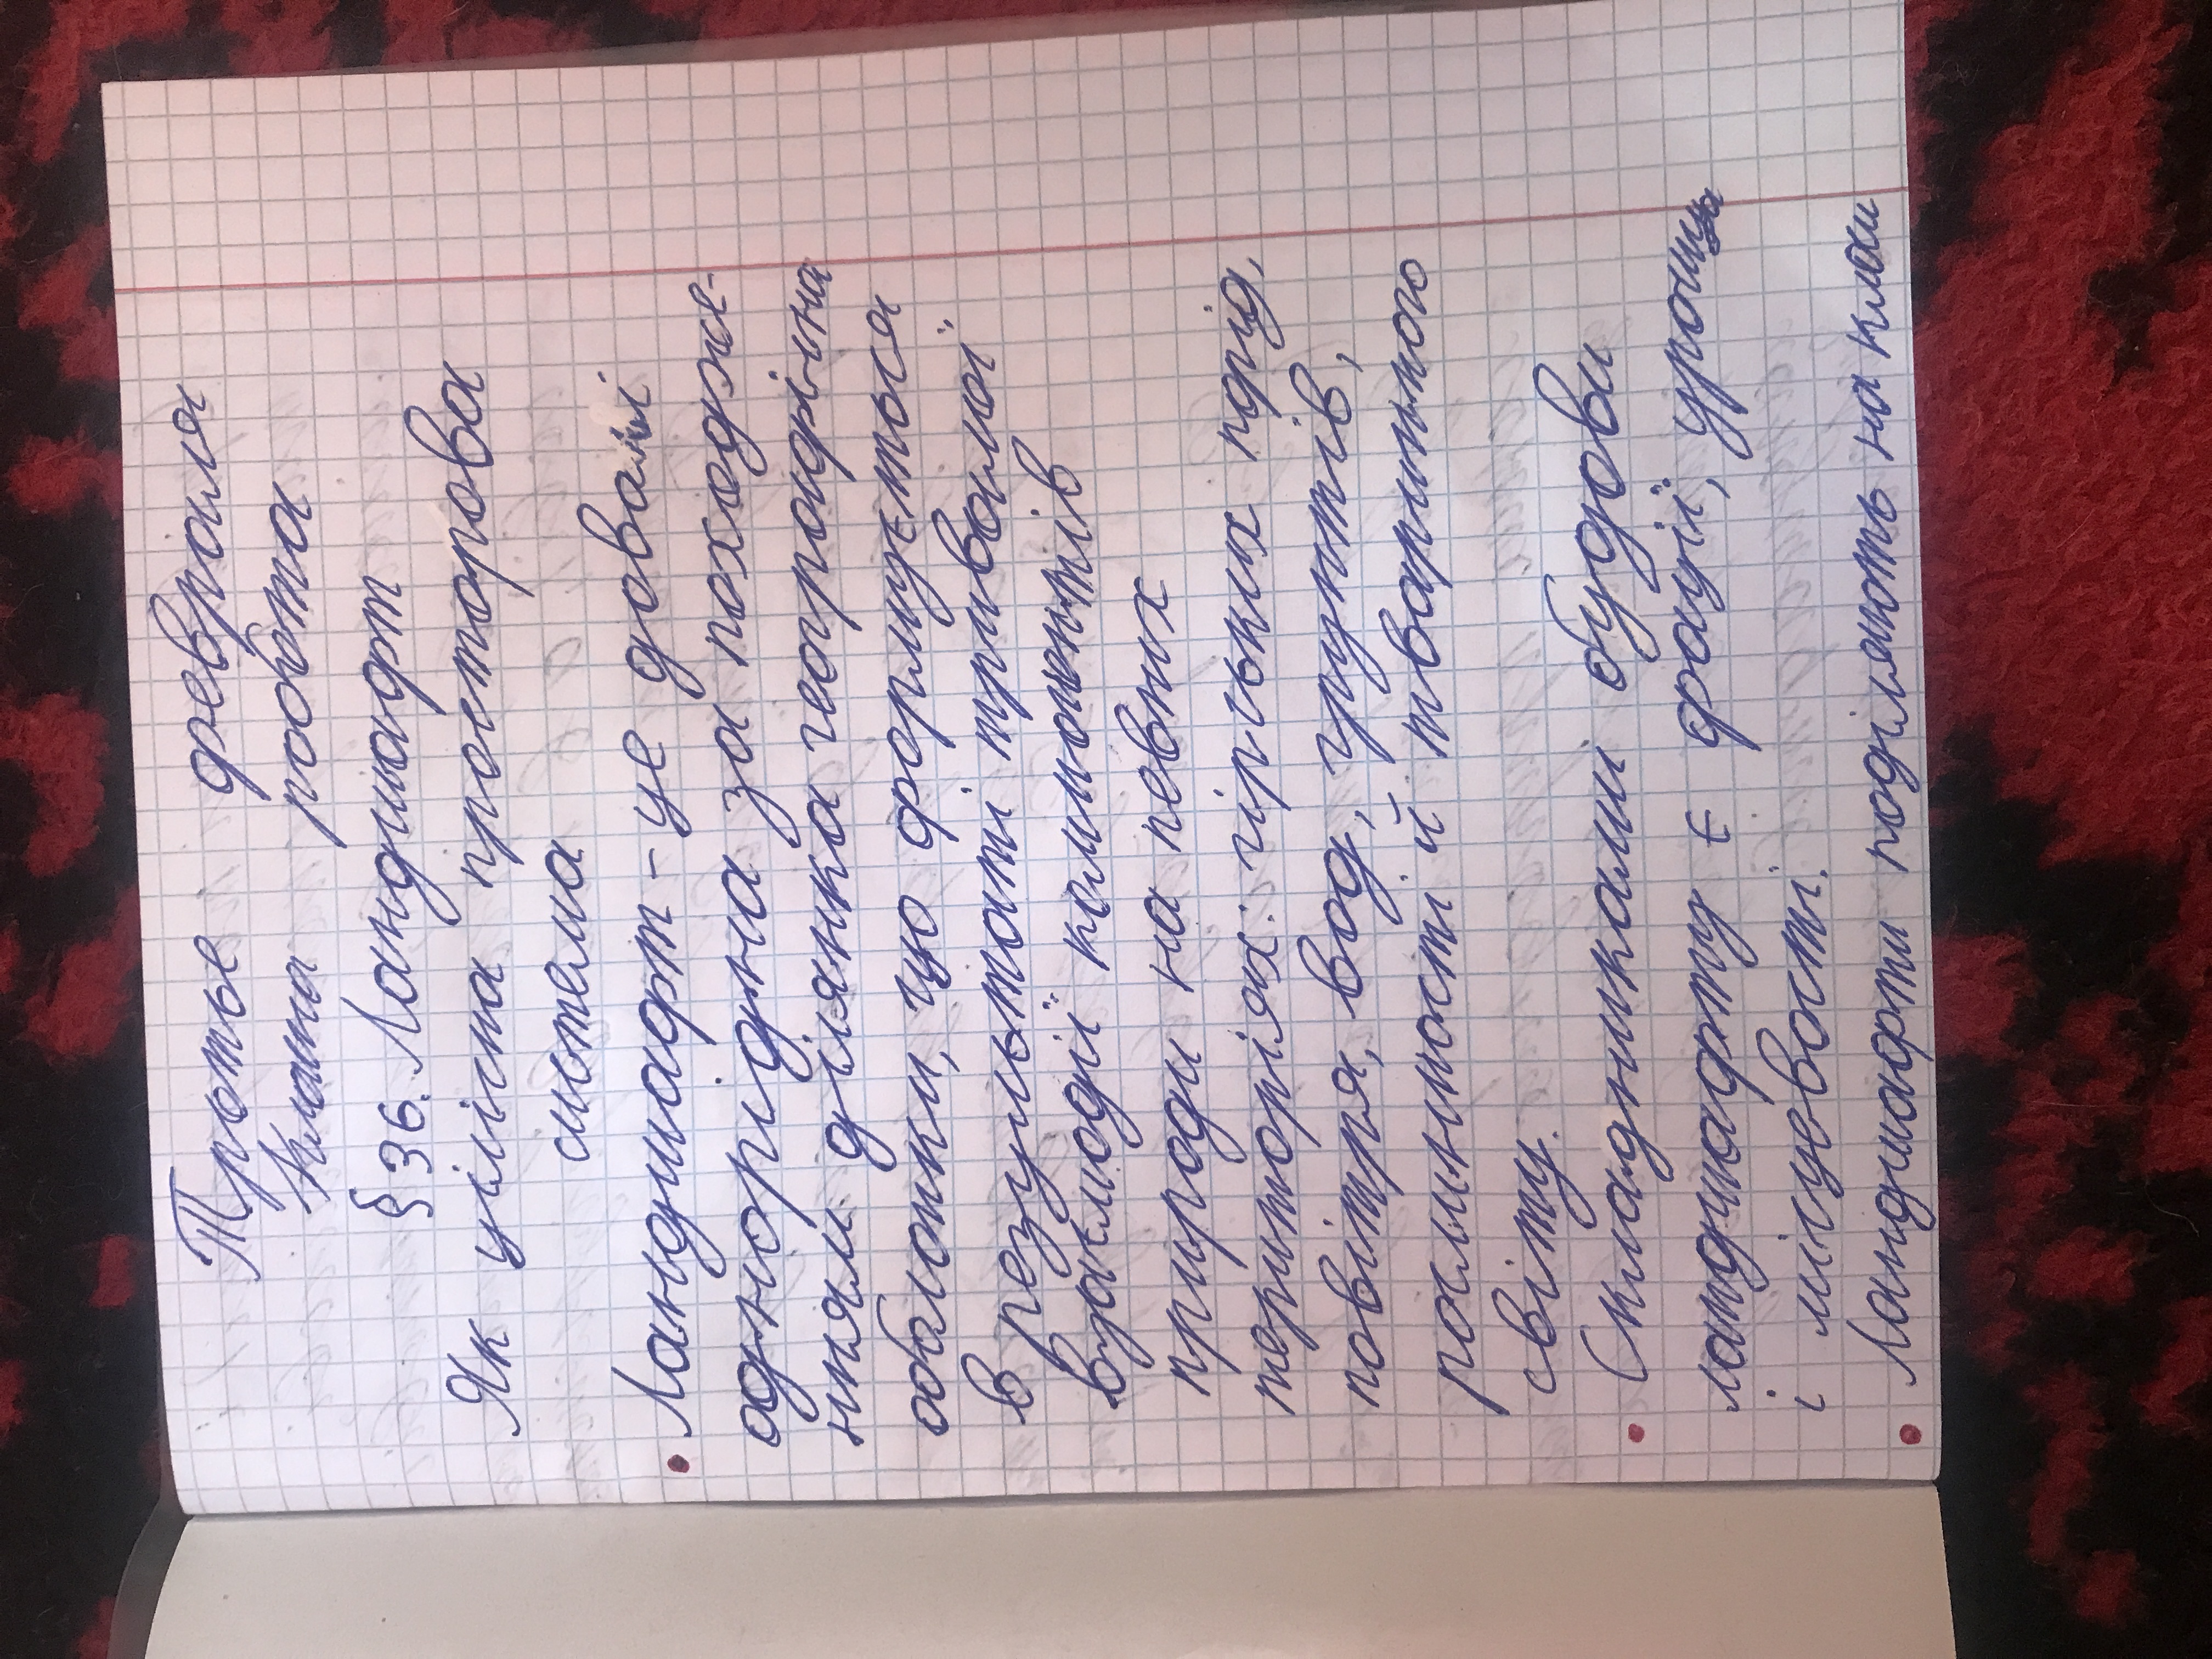 Тротье февраля
Класна робота
§ 36. Ландшафт
Як цілісна просторова
система
Ландшафт - це доволі
однорідна за походже-
нням ділянка географічна
оболонки, що формується
в результаті тривалої
взаємодії компонентів
природи на певних
територіях: гірських порід,
повітря, вод, грунтів,
рослинності й тваринного
світу.
Складниками будови
ландшафту є фації, урочища
і місцевості.
Ландшафти поділяють на класи